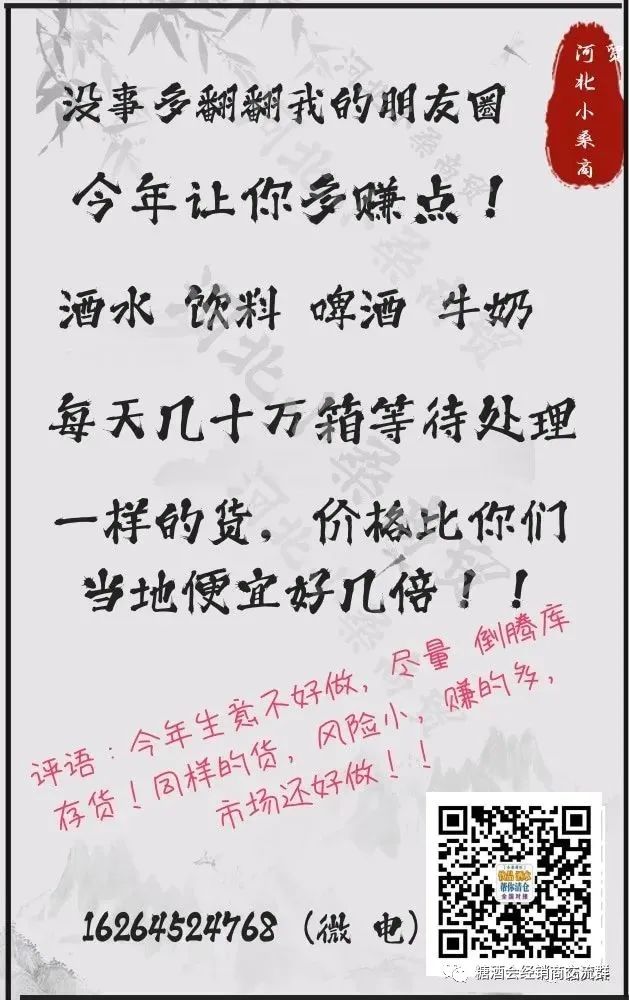 河北小桑商贸
没事多翻翻我的朋友圈
今年让你多赚点！
酒水 饮料 啤酒 牛奶
每天几十万箱等待处理
一样的货，价格比你们
当地便宜好几倍！！
评语：今年生意不好做，尽量 倒腾库
存货！同样的货，风险小，赚的多，
市场还好做！！
饮品 酒水
帮你清仓
全国对接
16264524768（微 电）
糖酒会经销商交流群
河北小桑商贸